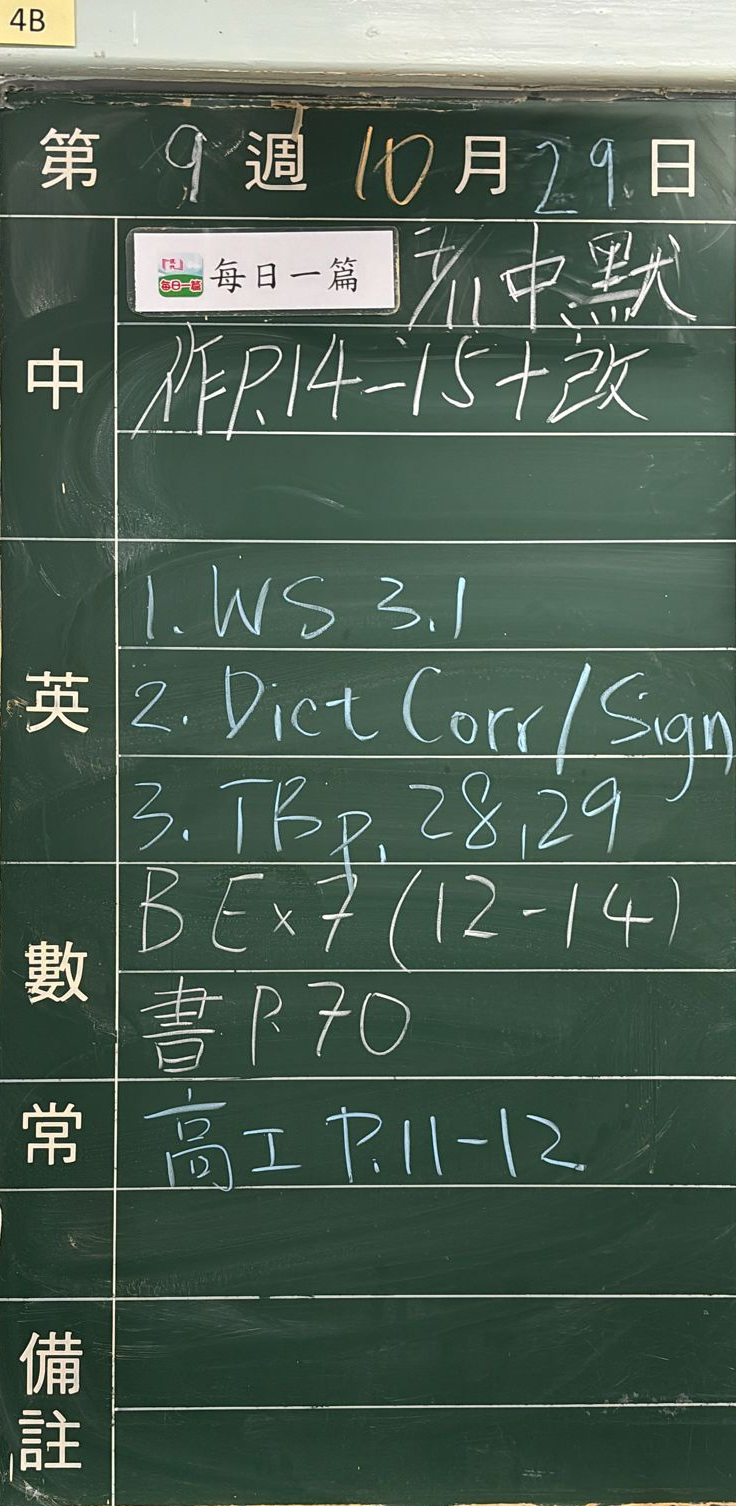 4B
第 9 週 10 月 29 日
中
每日一篇 每日一篇 7/11 中默
作P.14-15+改
英
1. WS 3.1
2. Dict Corr/Sign
3. TB p. 28,29
數
B Ex 7 (12-14)
書 P.70
常
高工 P.11-12
備註